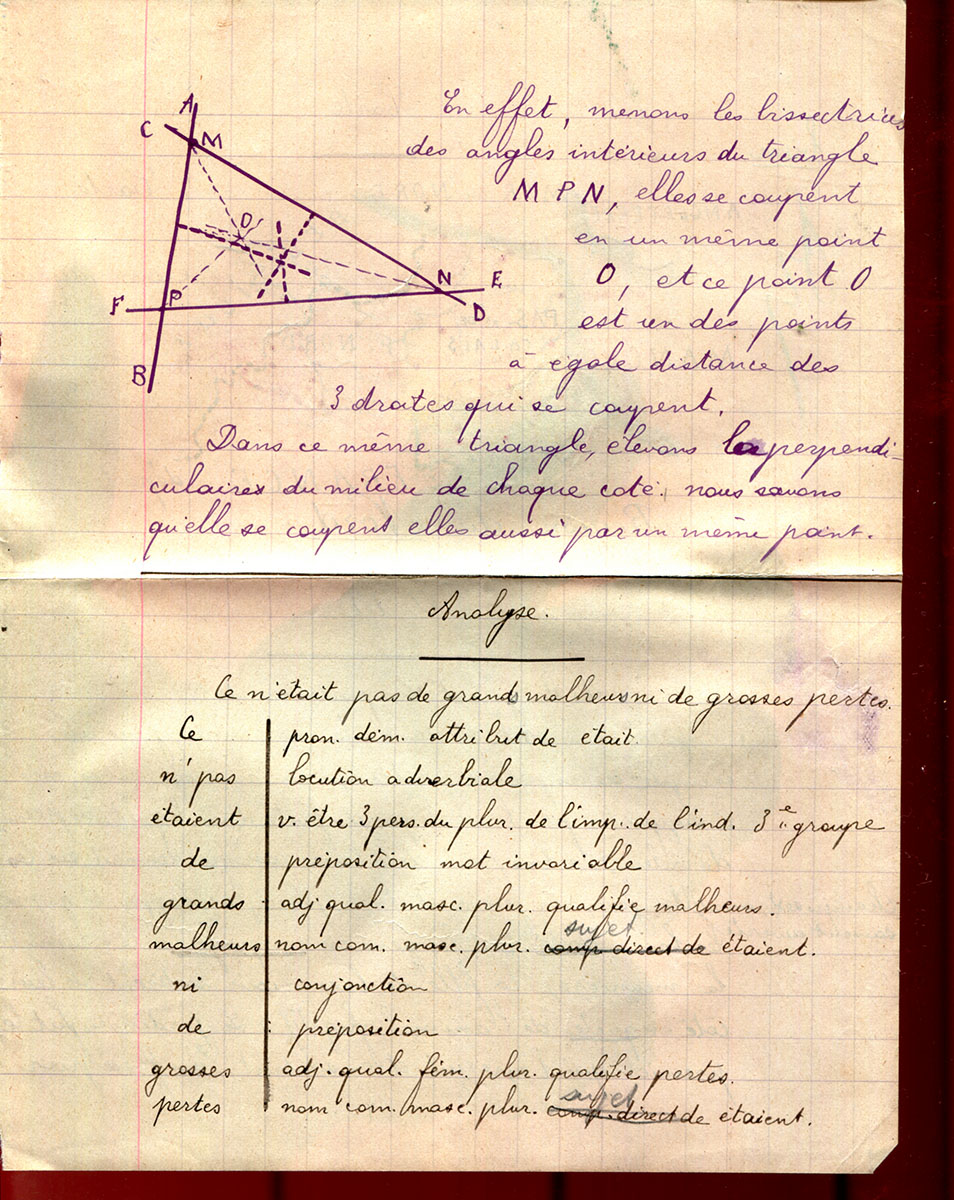 A
C
M
O'
N
E
F
P
D
B
En effet, menons les bissectrices
des angles intérieurs du triangle
M P N, elles se coupent
en un même point
O, et ce point O
est un des points
à égale distance des
3 droites qui se coupent.
Dans ce même triangle, élevons la perpendi-
culaires du milieu de chaque coté. nous savons
qu'elle se coupent elles aussi par un même point.
Analyse.
Ce n'était pas de grands malheurs ni de grosses pertes.
Ce pron. dém. attribut de était.
n' pas locution adverbiale
étaient v. être 3 pers. du plur. de l'imp. de l'ind. 3e groupe
de préposition mot invariable
grands adj qual. masc. plur. qualifie malheurs.
sujet
malheurs nom com. masc. plur. comp direct de étaient.
ni conjonction
de : préposition
grosses adj. qual. fém. plur. qualifie pertes.
sujet
pertes nom com. masc. plur. comp. direct de étaient.